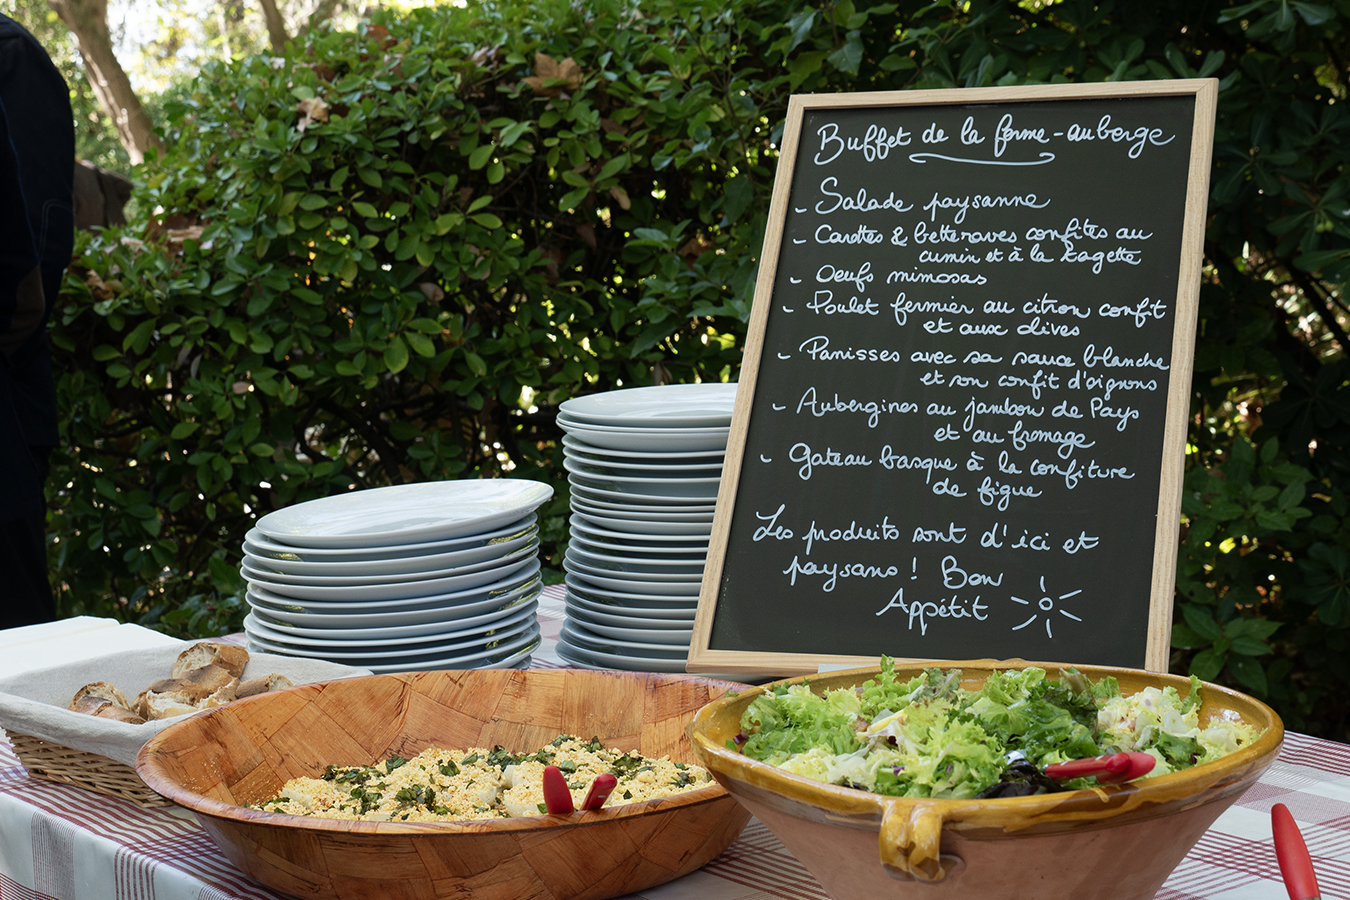 Buffet de la ferme-auberge
- Salade paysanne
- Carottes & betteraves confites au
cumin et à la
- Oeufs mimosas
- Poulet fermier au citron confit
et aux olives
- Panisses avec sa sauce blanche
et son confit d'oignons
- Aubergines au jambon de Pays
et au fromage
- Gateau basque à la confiture
de figue
Les produits sont d'ici et
paysans ! Bon
Appétit